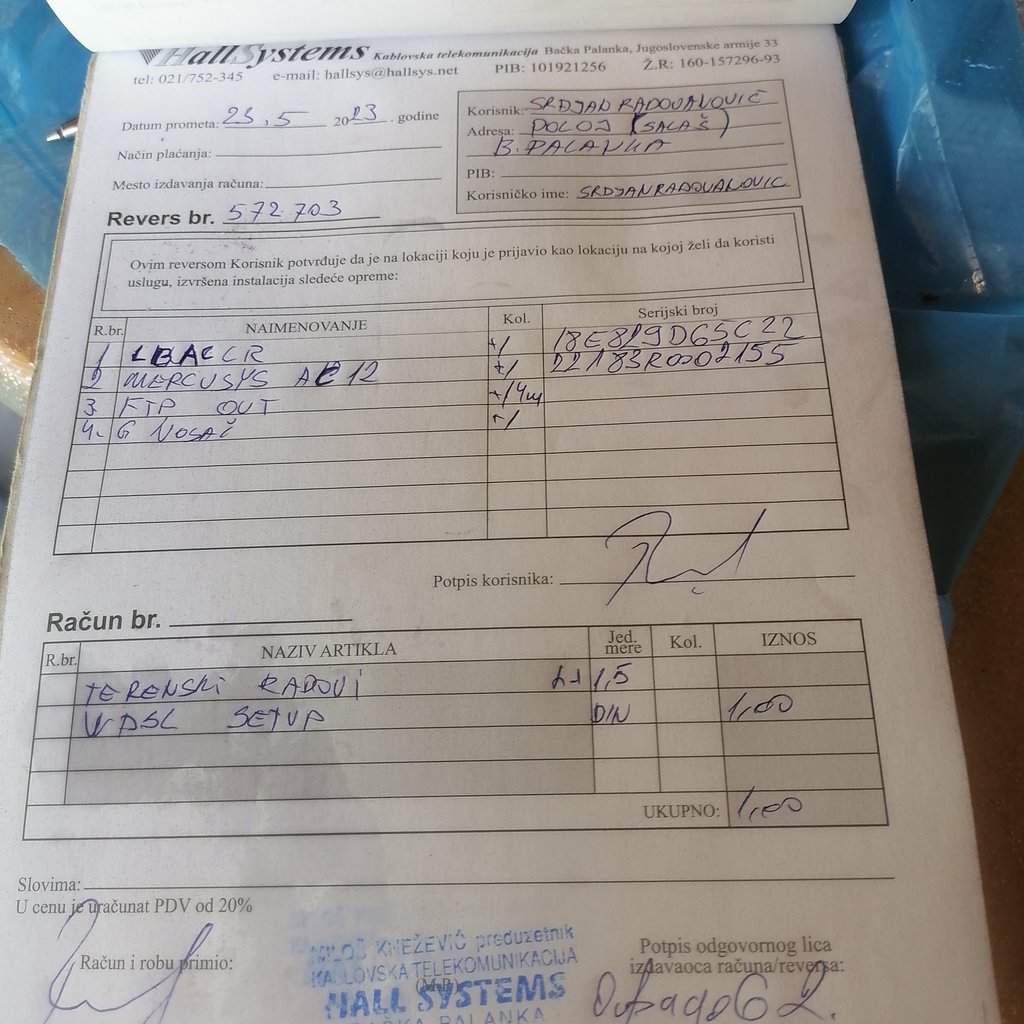 HallSystems Kablovska telekomunikacija Bačka Palanka, Jugoslovenske armije 33
tel: 021/752-345 e-mail: hallsys@hallsys.net PIB: 101921256 Ž.R: 160-157296-93
Datum prometa: 23.5 2023. godine
Način plaćanja:
Mesto izdavanja računa:
Revers br. 572703
Korisnik: SRDJAN RADOVANOVIC
Adresa: POLOJ (SALAŠ)
B. PALANKA
PIB:
Korisničko ime: SRDJANRADOVANOVIC
Ovim reversom Korisnik potvrđuje da je na lokaciji koju je prijavio kao lokaciju na kojoj želi da koristi
uslugu, izvršena instalacija sledeće opreme:
R.br. NAIMENOVANJE Kol. Serijski broj
1 +1 18E819D65C22
2 MERCUSYS AC12 +1 22183R0002155
3. FTP OUT
4. G NOSAČ
Potpis korisnika:
Račun br.
R.br. NAZIV ARTIKLA Jed. mere Kol. IZNOS
TERENSKI RADOVI 1,5
WDSL SETUP DIN 1,00
UKUPNO: 1,00
Slovima:
U cenu je uračunat PDV od 20%
Račun i robu primio:
MILOŠ KNEŽEVIĆ preduzetnik
KABLOVSKA TELEKOMUNIKACIJA
(M.P.)
HALL SYSTEMS
BAČKA PALANKA
Potpis odgovornog lica
izdavaoca računa/reversa: